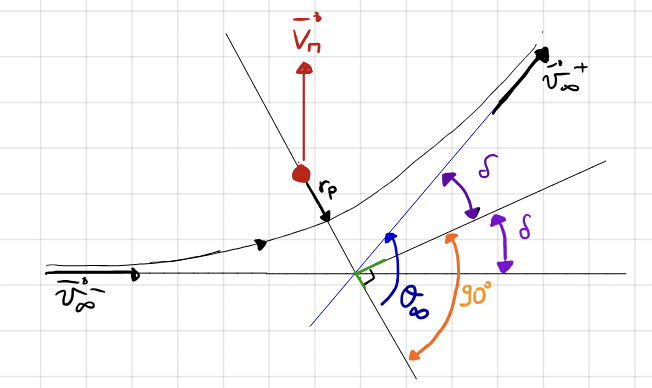 V⃗п
v⃗∞⁺
rₚ
δ
δ
v⃗∞⁻
θ∞
90°